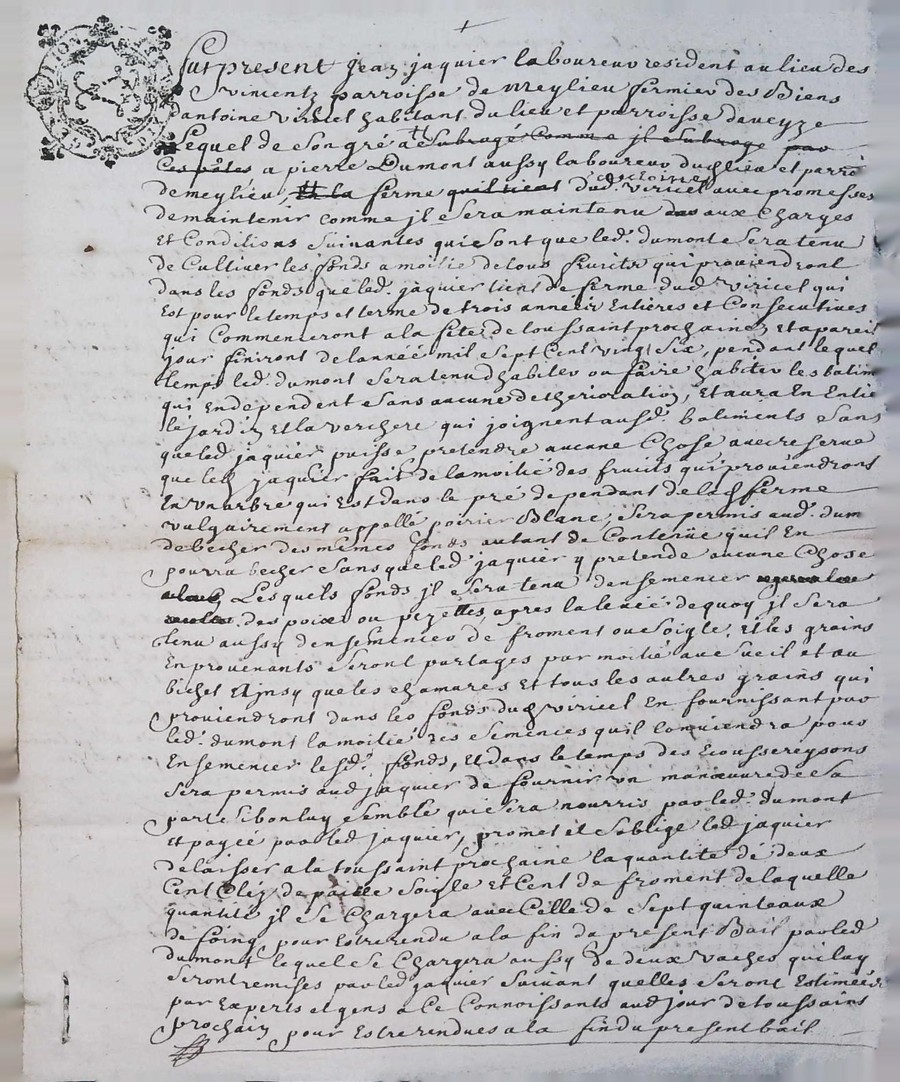 Fut present jean jaquier laboureur resident au lieu des
vincentz parroisse de meylieu fermier des Biens
antoine viricel habitant du lieu et parroisse deveyze
Lequel de son gré a subrogé comme jl subroge par
Ces p̃ntes a pierre Dumont aussy laboureur dud lieu et parre
demeylieu, la ferme quil tient dud. antoine viricel avec promesses
demaintenir comme jl sera maintenu aux Charges
Et Conditions suivantes qui sont que led. dumont sera tenu
de Cultiver les fonds a moitié de tous fruits qui proviendront
dans les fonds que led. jaquier tient de ferme dud viricel qui
Est pour le temps et terme de trois années Entieres et Consecutives
qui Commenceront a la fete de toussaint prochaine, et a pareil
jour finiront de lannée mil sept Cent vingt six, pendant lequel
temps led. dumont sera tenu dhabiter ou faire habiter les batim
qui En dependent sans aucune detherioration, Et aura En Entie
le jardin Et la verchere qui joignent ausd. batiments sans
que led jaquier puisse pretendre aucune Chose avec reserve
que led jaquier fait de la moitié des fruits qui proviendront
En un arbre qui Est dans le pré dependant de lad ferme
vulgairement appellé poirier Blanc, sera permis aud. dum
de becher des mêmes fonds autant de Contenüe quil En
pourra becher sans que led jaquier y pretende aucune Chose
Lesquels fonds jl sera tenu densemencer
des poix ou pezettes, apres la levée de quoy jl sera
tenu aussy densemencer de froment ou soigle, Et les grains
En provenants seront partagés par moitié
bichet Ainsy que les chanvres Et tous les autres grains qui
proviendront dans les fonds dud viricel En fournissant par
led. dumont la moitié des semences quil conviendra pour
Ensemencer lesd. fonds, Et dans le temps des Ecoussereysons
sera permis aud jaquier de fournir un manœuvre de sa
part si bon luy semble qui sera nourris par led. dumont
Et payée par led jaquier, promet et soblige led jaquier
de laisser a la toussaint prochaine la quantité de deux
Cent Cléz de paille soigle Et Cent de froment de laquelle
quantité jl se Chargera avec Celle de sept quinteaux
de foing pour Estre rendu a la fin du present Bail par led
dumont lequel se Chargera aussy de deux vaches qui luy
seront remises par led jaquier suivant quelles seront Estimées
par Experts et gens a Ce Connoissants aud jour de toussains
prochain pour Estre rendues a la fin du present bail